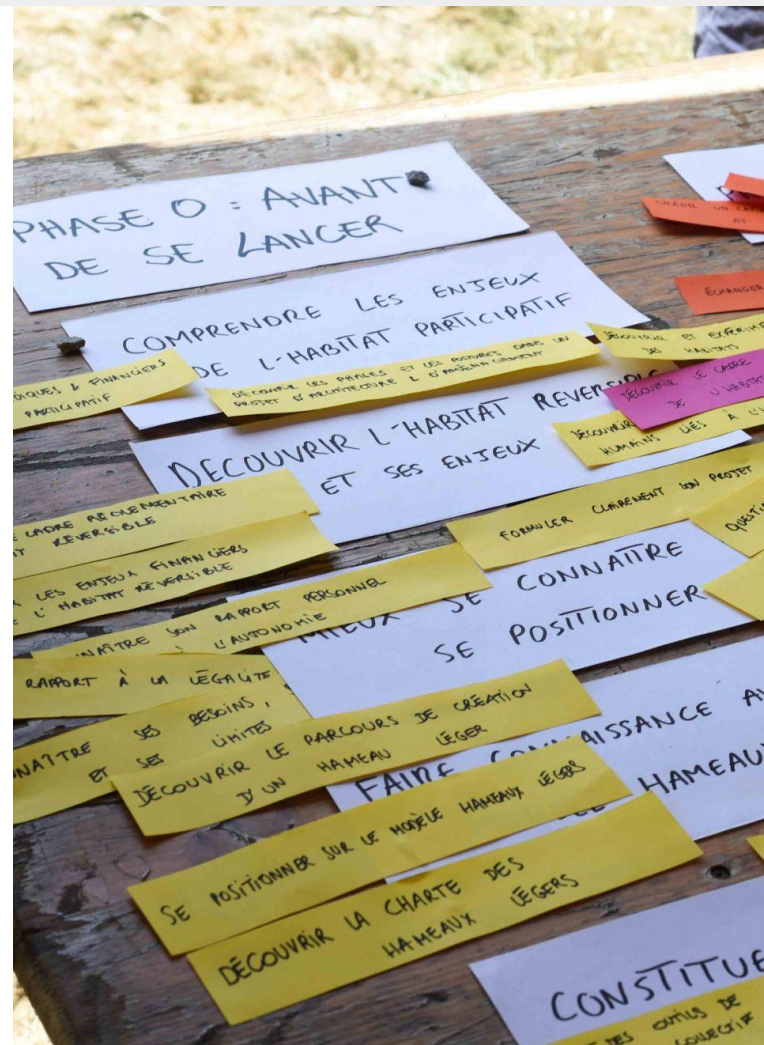 PHASE 0 : AVANT
DE SE LANCER
COMPRENDRE LES ENJEUX
DE L'HABITAT PARTICIPATIF
& FINANCIERS
PARTICIPATIF
DÉCOUVRIR LES PHASES ET LES POSTURES DANS UN
PROJET D'ARCHITECTURE & D'AMÉNAGEMENT
DÉCOUVRIR ET
DES HABITATS
DÉCOUVRIR LE CADRE
DE L'HABITAT
DÉCOUVRIR
HUMAINS LIÉS À
CRÉER UN
ET
ÉCHANGER
DÉCOUVRIR L'HABITAT REVERSIBLE
ET SES ENJEUX
CADRE RÉGLEMENTAIRE
RÉVERSIBLE
LES ENJEUX FINANCIERS
L'HABITAT RÉVERSIBLE
FORMULER CLAIREMENT SON PROJET
MIEUX SE CONNAÎTRE
SE POSITIONNER
SON RAPPORT PERSONNEL
À L'AUTONOMIE
RAPPORT À LA LÉGALITÉ
SES BESOINS,
ET SES LIMITES
DÉCOUVRIR LE PARCOURS DE CRÉATION
D'UN HAMEAU LÉGER
FAIRE CONNAISSANCE
SE POSITIONNER SUR LE MODÈLE HAMEAUX LÉGERS
DÉCOUVRIR LA CHARTE DES
HAMEAUX LÉGERS
DES OUTILS DE
COLLECTIF